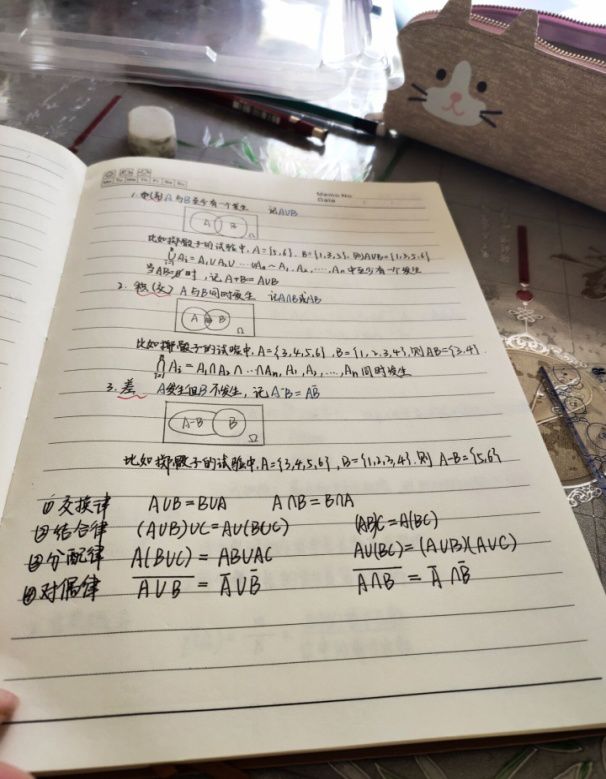 Memo No.
Date
Mo Tu We Th Fr Sa Su
1. 和(并) A与B至少有一个发生 记A∪B
A B Ω
比如掷骰子的试验中, A={5,6}, B={1,3,5}, 则A∪B={1,3,5,6}
n∪i=1 Ai = A1∪A2∪…∪An ~ A1, A2, …, An 中至少有一个发生
当AB=∅时, 记A+B=A∪B
2. 积(交) A与B同时发生 记A∩B或AB
A B Ω
比如掷骰子的试验中, A={3,4,5,6}, B={1,2,3,4}, 则AB={3,4}.
n∩i=1 Ai = A1∩A2∩…∩An, A1, A2, …, An 同时发生
3. 差 A发生但B不发生, 记A-B=AB̅
A-B B Ω
比如掷骰子的试验中, A={3,4,5,6}, B={1,2,3,4}. 则 A-B={5,6}
① 交换律 A∪B=B∪A A∩B=B∩A
② 结合律 (A∪B)∪C=A∪(B∪C) (AB)C=A(BC)
③ 分配律 A(B∪C)=AB∪AC A∪(BC)=(A∪B)(A∪C)
④ 对偶律 A̅∪̅B̅ = A̅∪B̅ A̅∩̅B̅ = A̅∩B̅